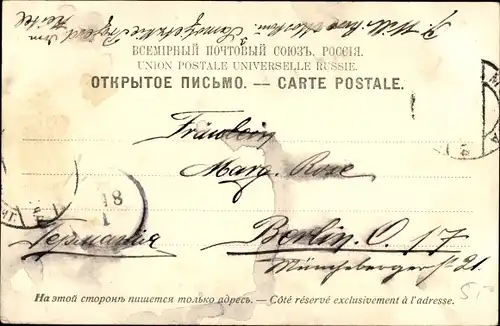 ВСЕМІРНЫЙ ПОЧТОВЫЙ СОЮЗЪ, РОССІЯ.
UNION POSTALE UNIVERSELLE RUSSIE.
ОТКРЫТОЕ ПИСЬМО. — CARTE POSTALE.
Fräulein
Marg. Rose
18
1
Германія
Berlin. O. 17
Müncheberger Str. 21.
На этой сторонѣ пишется только адресъ. — Côté réservé exclusivement à l'adresse.